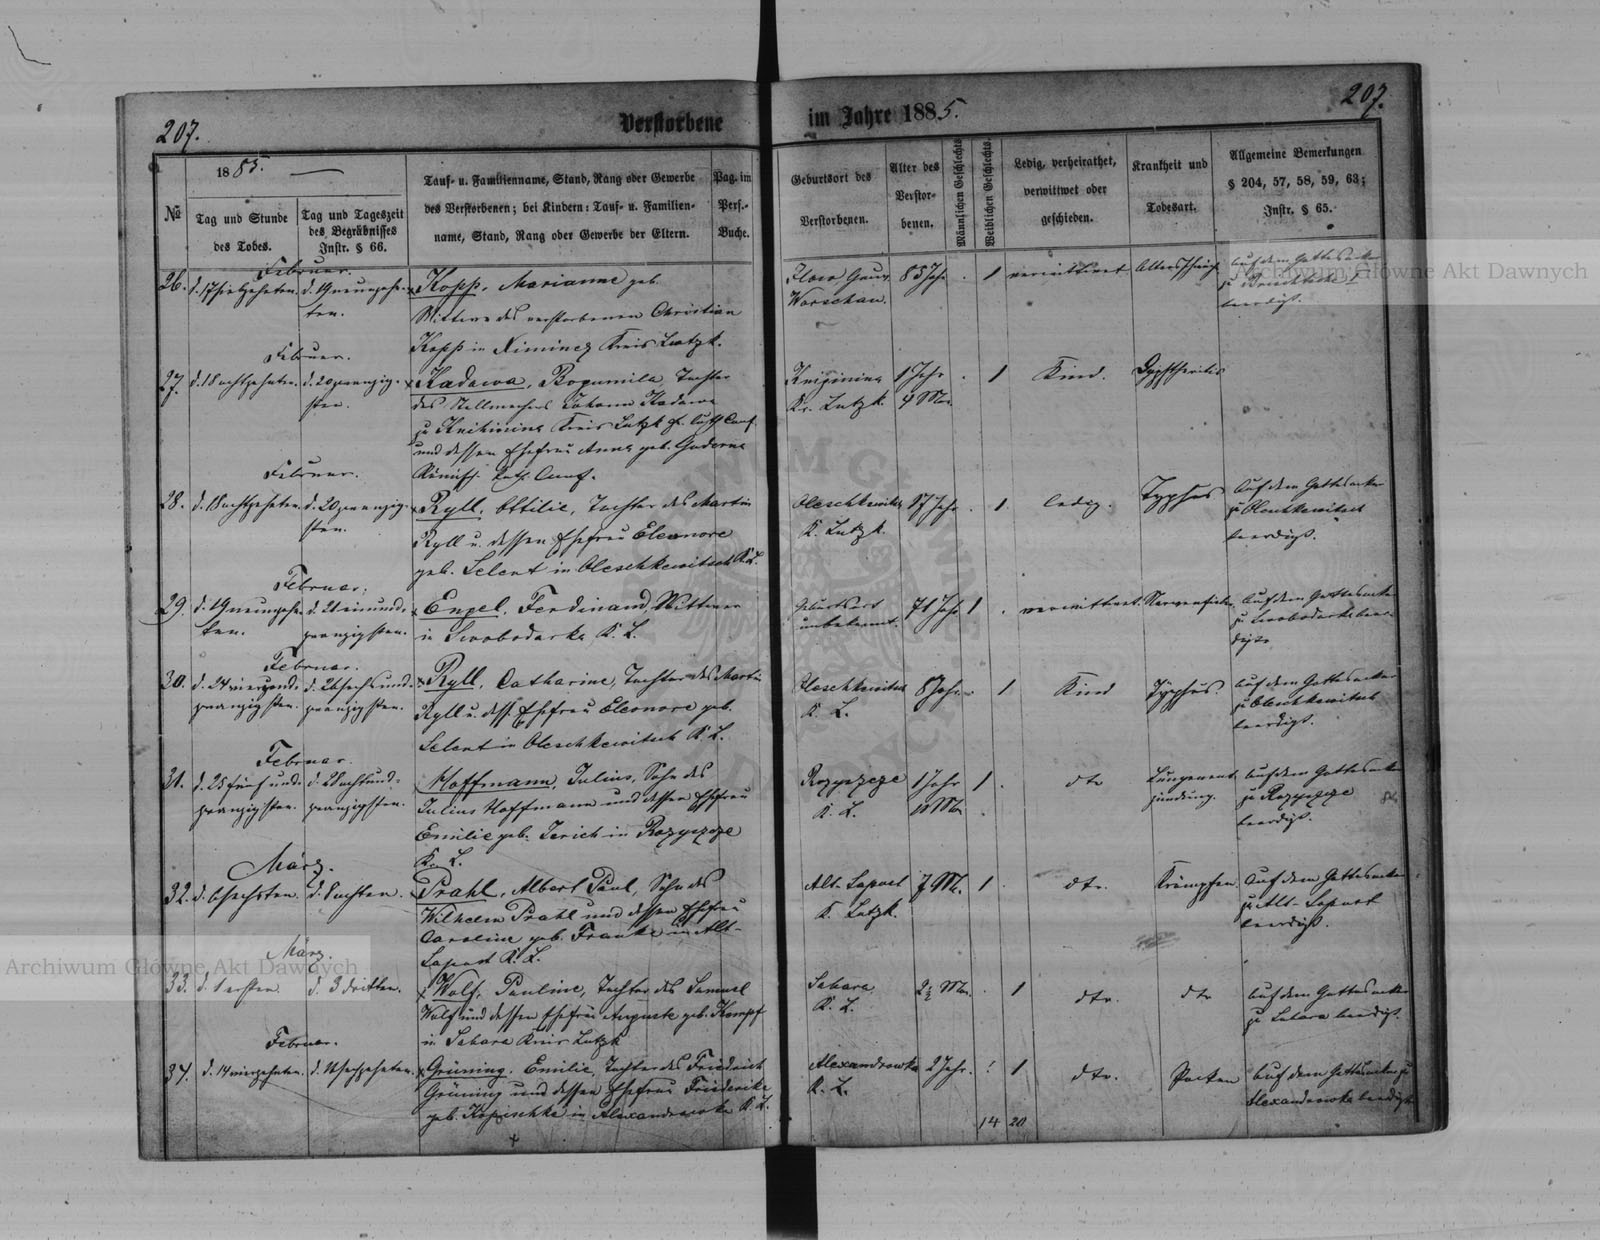 207.
Verstorbene
im Jahre 1885.
207.
№
1885.
Tag und Stunde
des Todes.
Tag und Tageszeit
des Begräbnisses
Instr. § 66.
Tauf- u. Familienname, Stand, Rang oder Gewerbe
des Verstorbenen; bei Kindern: Tauf- u. Familien-
name, Stand, Rang oder Gewerbe der Eltern.
Pag. im
Pers.-
Buche.
Geburtsort des
Verstorbenen.
Alter des
Verstor-
benen.
Männlichen Geschlechts.
Weiblichen Geschlechts.
Ledig, verheirathet,
verwittwet oder
geschieden.
Krankheit und
Todesart.
Allgemeine Bemerkungen
§ 204, 57, 58, 59, 63;
Instr. § 65.
Februar.
26. d. 17 siebzehnten. d. 19 neunzehn-
ten.
Kopp, Marianne geb.
Wittwe des verstorbenen Christian
Kopp in Kreis Lutzk.
Gouv.
Warschau.
83 Jahr
1
verwittwet
Altersschwäche
Auf dem Gottesacker
beerdigt.
Februar.
27. d. 18 achtzehnten. d. 20 zwanzig-
sten.
Kadawa, Bogumila, Tochter
des Stellmachers Johann Kadawa
zu Knihinina Kreis Lutzk
und dessen Ehefrau Anna geb.
Römisch Kath. Conf.
Kniginina
Kr. Lutzk.
1 Jahr
1
Kind.
Dyphtheritis
Februar.
28. d. 18 achtzehnten. d. 20 zwanzig-
sten.
Ryll, Ottilie, Tochter des Martin
Ryll u. dessen Ehefrau Eleonore
geb. Selent in Oleschkewitsch K. L.
Oleschkewitsch
K. Lutzk.
17 Jahr
1
ledig.
Typhus
Auf dem Gottesacker
zu Oleschkewitsch
beerdigt.
Februar.
29. d. 19 neunzehn-
ten.
d. 21 einund-
zwanzigsten.
Engel, Ferdinand, Wittwer
in Swobodarka K. L.
Geburtsort
unbekannt.
71 Jahr
1
verwittwet
Nervenfieber
Auf dem Gottesacker
zu Swobodarka beer-
digt.
Februar.
30. d. 24 vierund-
zwanzigsten.
d. 26 sechsund-
zwanzigsten.
Ryll, Catharine, Tochter des Martin
Ryll u. dess. Ehefrau Eleonore geb.
Selent in Oleschkewitsch K. L.
Oleschkewitsch
K. L.
8 Jahr
1
Kind
Typhus.
Auf dem Gottesacker
zu Oleschkewitsch
beerdigt.
Februar.
31. d. 25 fünfund-
zwanzigsten.
d. 28 achtund-
zwanzigsten.
Hoffmann, Julius, Sohn des
Julius Hoffmann und dessen Ehefrau
Emilie geb. Jerich in Rozyszcze
K. L.
Rozyszcze
K. L.
1 Jahr
1
dto
Lungenent-
zündung.
Auf dem Gottesacker
zu Rozyszcze
beerdigt.
März.
32. d. 6 sechsten. d. 8 achten.
Prahl, Albert Paul, Sohn des
Wilhelm Prahl und dessen Ehefrau
Caroline geb. Franke in Alt-
Lapust K. L.
Alt-Lapust
K. Lutzk.
7 M.
1
dto.
Krämpfen.
Auf dem Gottesacker
zu Alt-Lapust
beerdigt.
März.
33. d. 1 ersten. d. 3 dritten.
Wolf, Pauline, Tochter des Samuel
Wolf und dessen Ehefrau Auguste geb. Kempf
in Sabara Kreis Lutzk
Sabara
K. L.
2½ Mon.
1
dto.
dto
Auf dem Gottesacker
zu Sabara beerdigt.
Februar.
34. d. 14 vierzehnten. d. 16 sechzehnten.
Grüning, Emilie, Tochter des Friedrich
Grüning und dessen Ehefrau Friederike
geb. Kopischke in Alexandrowka K. L.
Alexandrowka
K. L.
2 Jahr.
1
dto.
Pocken
Auf dem Gottesacker zu
Alexandrowka beerdigt
14 20
Archiwum Główne Akt Dawnych
Archiwum Główne Akt Dawnych